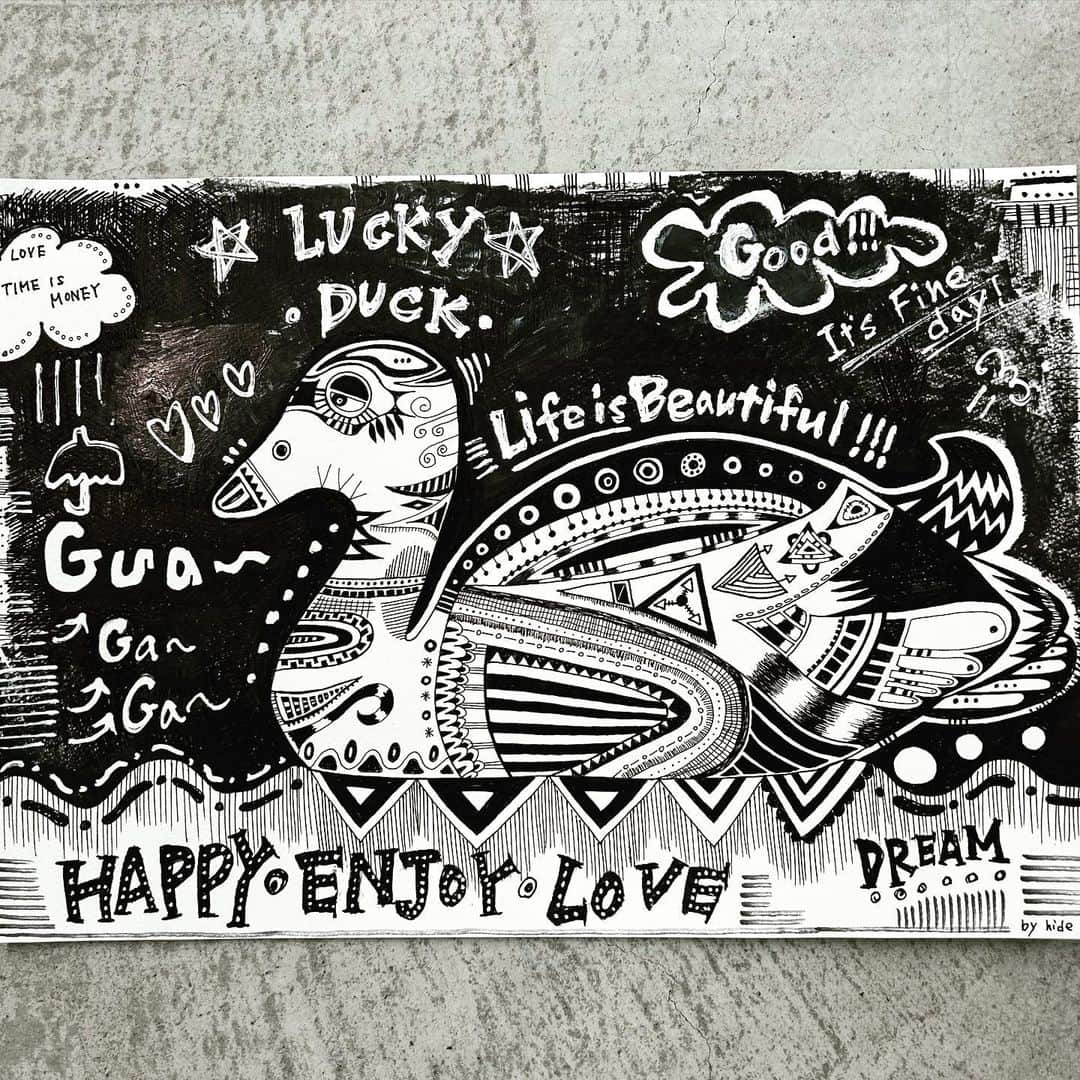 LOVE
TIME IS
MONEY
LUCKY
DUCK
Good!!!
It's Fine
day!
Life is Beautiful!!!
Gua~
Ga~
Ga~
HAPPY・ENJOY・LOVE
DREAM
by hide